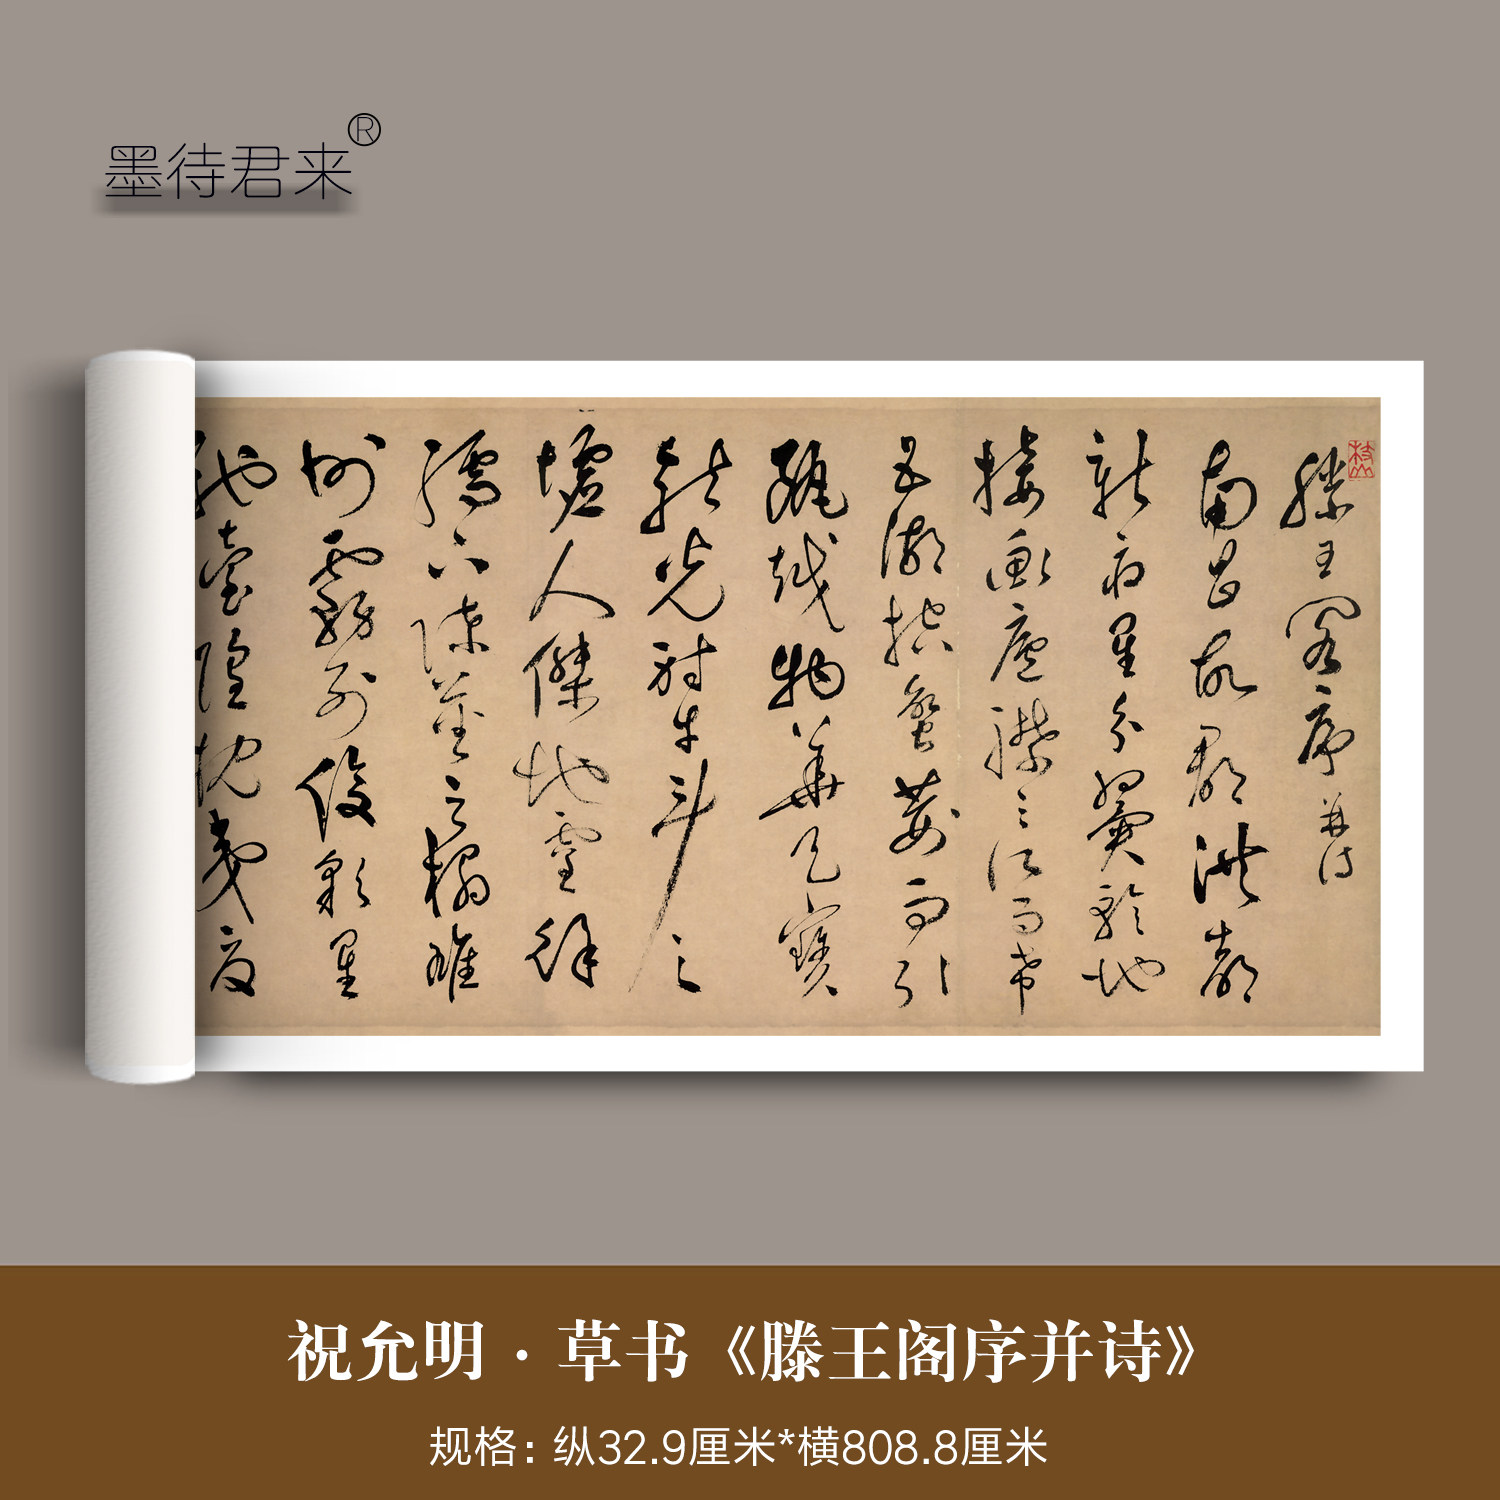 墨待君来®
滕王阁序并诗
南昌故郡洪都
新府星分翼轸地
接衡庐襟三江而带
五湖控蛮荆而引
瓯越物华天宝
龙光射牛斗之
墟人杰地灵徐
孺下陈蕃之榻雄
州雾列俊彩星
驰台隍枕夷夏
祝允明·草书《滕王阁序并诗》
规格：纵32.9厘米*横808.8厘米